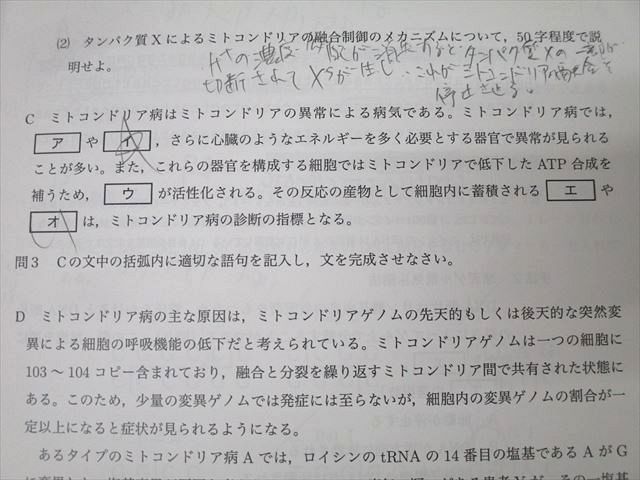 (2) タンパク質 X によるミトコンドリアの融合制御のメカニズムについて，50 字程度で説
明せよ。
H⁺の濃度勾配が消失すると タンパク質Xの一部が
切断されて Xsが生じ、これがミトコンドリアの融合を
停止させる。
C ミトコンドリア病はミトコンドリアの異常による病気である。ミトコンドリア病では，
ア や イ ，さらに心臓のようなエネルギーを多く必要とする器官で異常が見られる
ことが多い。また，これらの器官を構成する細胞ではミトコンドリアで低下した ATP 合成を
補うため， ウ が活性化される。その反応の産物として細胞内に蓄積される エ や
オ は，ミトコンドリア病の診断の指標となる。
問3 Cの文中の括弧内に適切な語句を記入し，文を完成させなさい。
D ミトコンドリア病の主な原因は，ミトコンドリアゲノムの先天的もしくは後天的な突然変
異による細胞の呼吸機能の低下だと考えられている。ミトコンドリアゲノムは一つの細胞に
103～104 コピー含まれており，融合と分裂を繰り返すミトコンドリア間で共有された状態に
ある。このため，少量の変異ゲノムでは発症には至らないが，細胞内の変異ゲノムの割合が一
定以上になると症状が見られるようになる。
あるタイプのミトコンドリア病 A では，ロイシンの tRNA の 14 番目の塩基である A が G